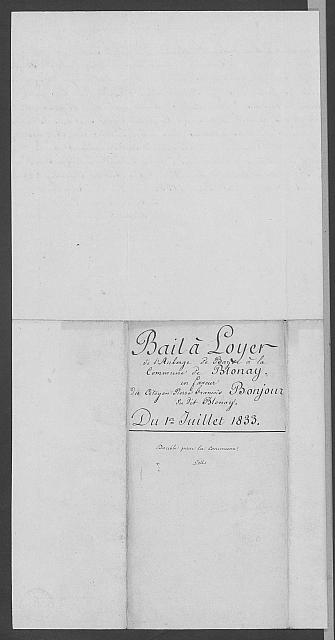 Bail à Loyer
de l'Auberge de Bayel à la
Commune de Blonay,
en faveur
du Citoyen Pierre François Bonjour
du dit Blonay.
Du 1er Juillet 1833.
Double pour la Commune